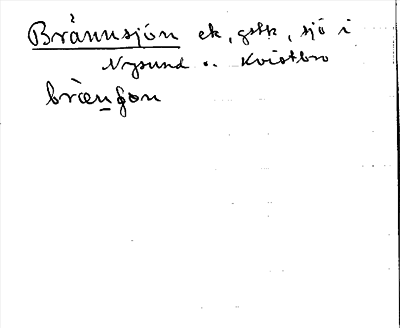 Brännsjön ek, gstk, sjö i
Nysund o. Kvistbro
bræ̀n̲ʃon